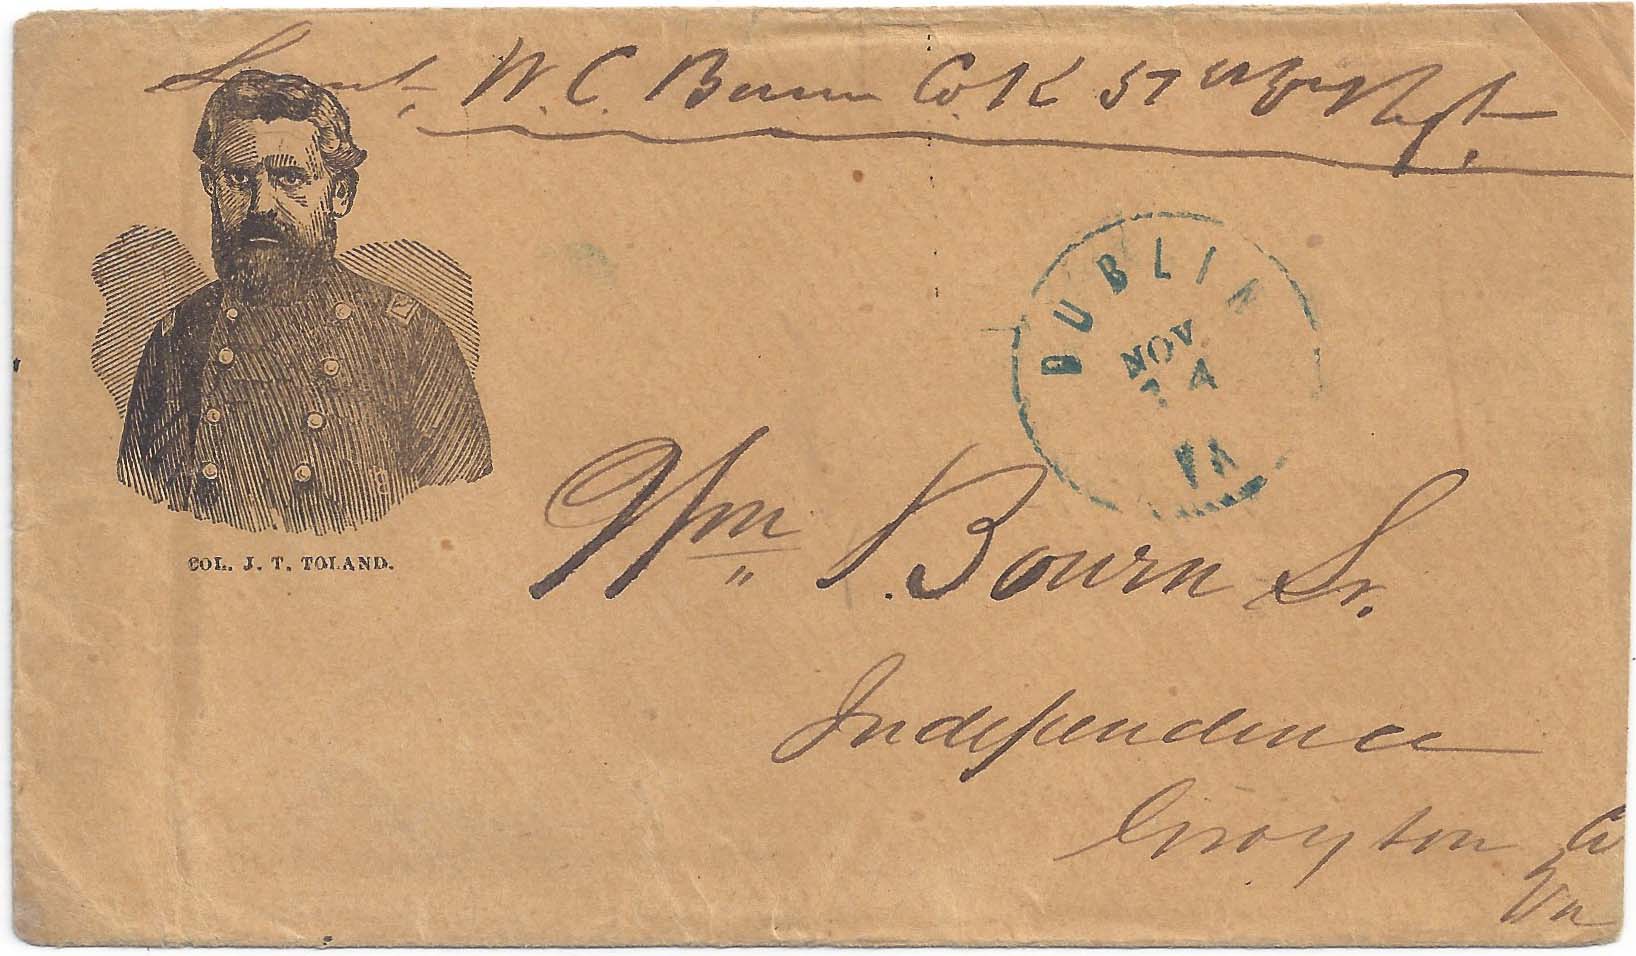 Lieut. W. C. Bourn Co K 51st Va Regt.
DUBLIN
NOV
14
VA
COL. J. T. TOLAND.
Wm S. Bourn Sr.
Independence
Grayson Co
Va